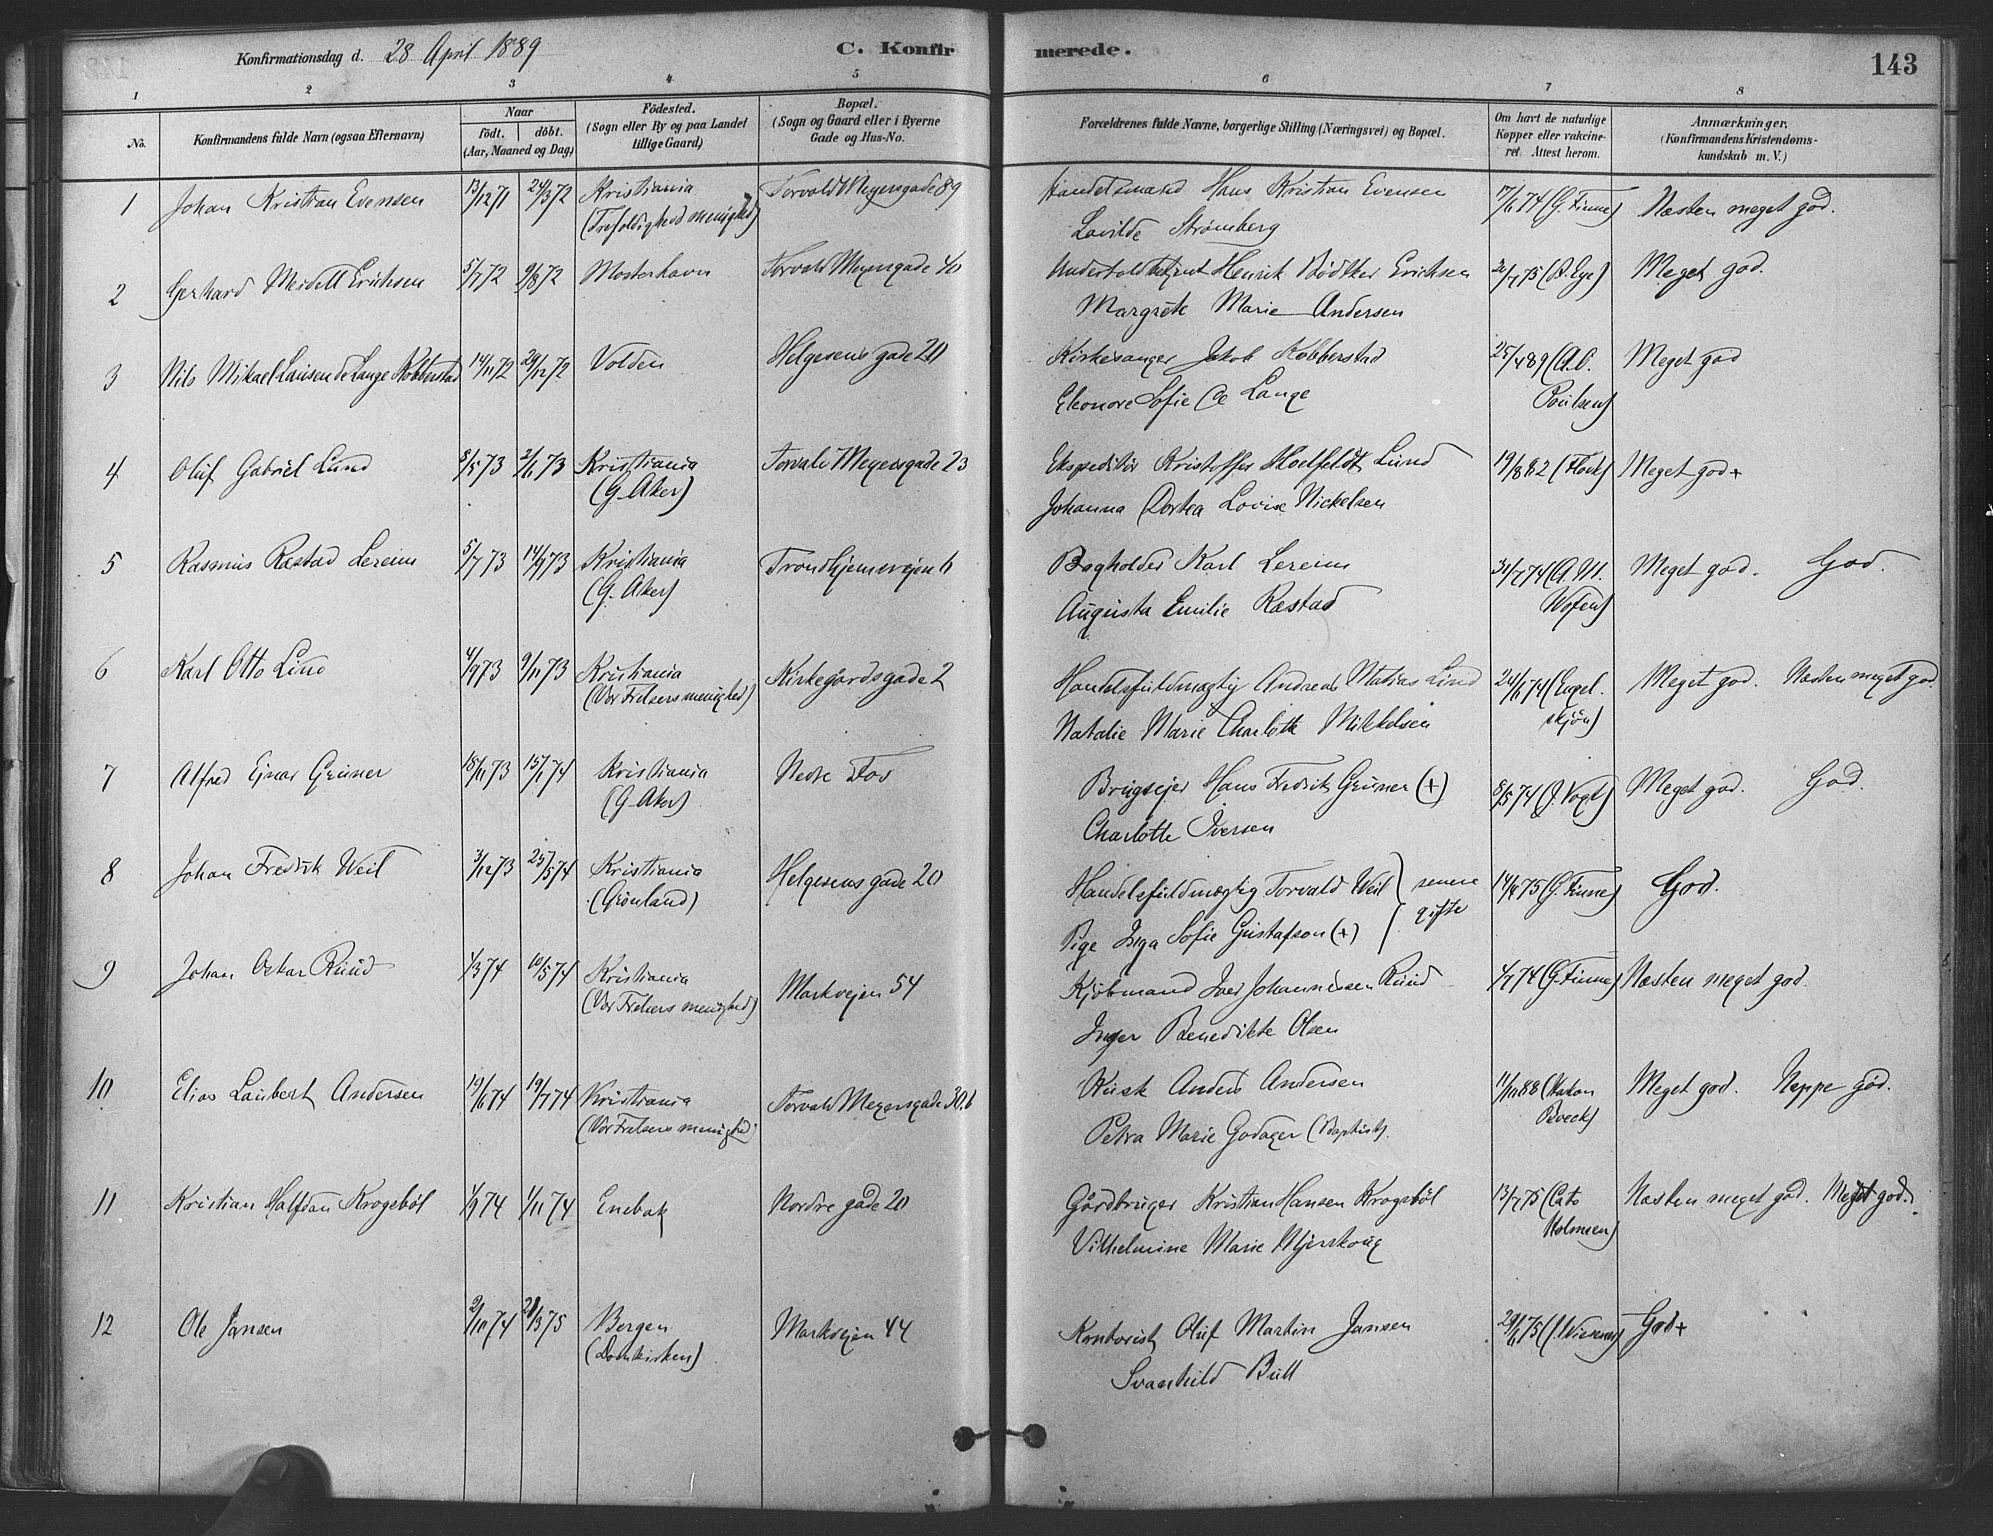 Konfirmationsdag d. 28 April 1889
C. Konfirmerede.
143
1 2 3 4 5 6 7 8
No.
Konfirmandens fulde Navn (ogsaa Efternavn)
Naar
födt. döbt.
(Aar, Maaned og Dag)
Födested.
(Sogn eller By og paa Landet
tillige Gaard)
Bopæl.
(Sogn og Gaard eller i Byerne
Gade og Hus-No.
Forældrenes fulde Navne, borgerlige Stilling (Næringsvei) og Bopæl.
Om havt de naturlige
Kopper eller vakcine-
ret. Attest herom.
Anmærkninger,
(Konfirmandens Kristendoms-
kundskab m. V.)
1 Johan Kristian Evensen 13/12 71 24/3 72 Kristiania Torvald Meyersgade 89 Handelsmand Hans Kristian Evensen 17/6 74 (G. Finne) Næsten meget god.
(Trefoldighed menighed) Lovilde Strömberg
2 Gerhard Meidell Erichsen 5/7 72 9/8 72 Mosterhavn Torvald Meyersgade 40 Henrik Bödtker Erichsen Meget god.
Margrete Marie Andersen
3 Nils Mikael de Lange Kobberstad 14/11 72 29/12 72 Volden Helgesens gade 20 Kirkesanger Jakob Kobberstad 25/4 89 (A. C. Meget god
Eleonore Sofie de Lange Poulsen)
4 Oluf Gabriel Lund 8/5 73 2/6 73 Kristiania Torvald Meyersgade 23 Ekspeditör Kristoffer Lund 19/8 82 Meget god +
(G. Aker) Johanna Dortea Lovise Nickelsen
5 Rasmus Ræstad Lereim 5/7 73 14/9 73 Kristiania Trondhjemsvejen 6 Bogholder Karl Lereim 31/7 74 (A. M. Meget god. God.
(G. Aker) Augusta Emilie Ræstad
6 Karl Otto Lind 4/9 73 9/11 73 Kristiania Kirkegardsgade 2 Handelsfuldmægtig Andreas Matias Lind 24/6 74 (Engel- Meget god. Næsten meget god.
(Vor Frelsers menighed) Natalie Marie Charlotte Mikkelsen skjön)
7 Alfred Ejnar Grüner 18/11 73 15/1 74 Kristiania Nedre Fos Brugsejer Hans Fredrik Grüner (+) 8/5 74 (J. Vogt) Meget god. God.
(G. Aker) Charlotte Iversen
8 Johan Fredrik Weil 3/12 73 25/5 74 Kristiania Helgesens gade 20 Handelsfuldmægtig Torvald Weil } senere (G. Finne) God.
(Grönland) Pige Inga Sofie Gustafson (+) } gifte
9 Johan Oskar Ruud 1/3 74 10/5 74 Kristiania Markvejen 54 Kjöbmand Iver Johannessen Ruud 1/7 74 (G. Finne) Næsten meget god.
(Vor Frelsers menighed) Inger Benedikte Olsen
10 Elias Laubert Andersen 19/6 74 19/7 74 Kristiania Torvald Meyersgade 30.b Kusk Anders Andersen 11/10 88 (Hakon Meget god. Neppe god.
(Vor Frelsers menighed) Petra Marie Godager (Baptist). Boeck)
11 Kristian Halfdan Krogsböl 1/9 74 1/11 74 Enebak Nordre gade 20 Gårdbruger Kristian Hansen Krogsböl 13/7 75 (Cato Næsten meget god. Meget god.
Vilhelmine Marie Mjerskoug Holmsen)
12 Ole Jansen 2/10 74 21/3 75 Bergen Markvejen 44 Kontorist Oluf Martin Jansen God +
(Domkirken) Svanhild Bull